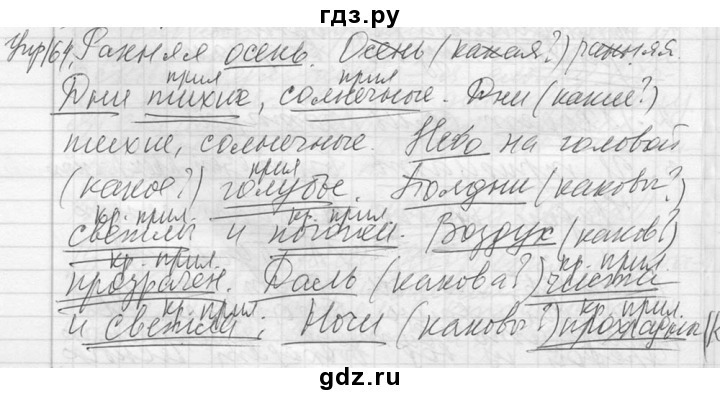 гдз.ру
Упр164. Ранняя осень. Осень (какая?) ранняя.
прил прил
Дни тихие, солнечные. Дни (какие?)
тихие, солнечные. Небо на головой
прил
(какое?) голубые. Полдни (каковы?)
кр. прил. кр. прил.
светлы и погожи. Воздух (каков?)
кр. прил. кр. прил.
прозрачен. Даль (какова?) чиста
кр. прил. кр. прил.
и светла. Ночи (каковы?) прохладны (к
gdz.ru